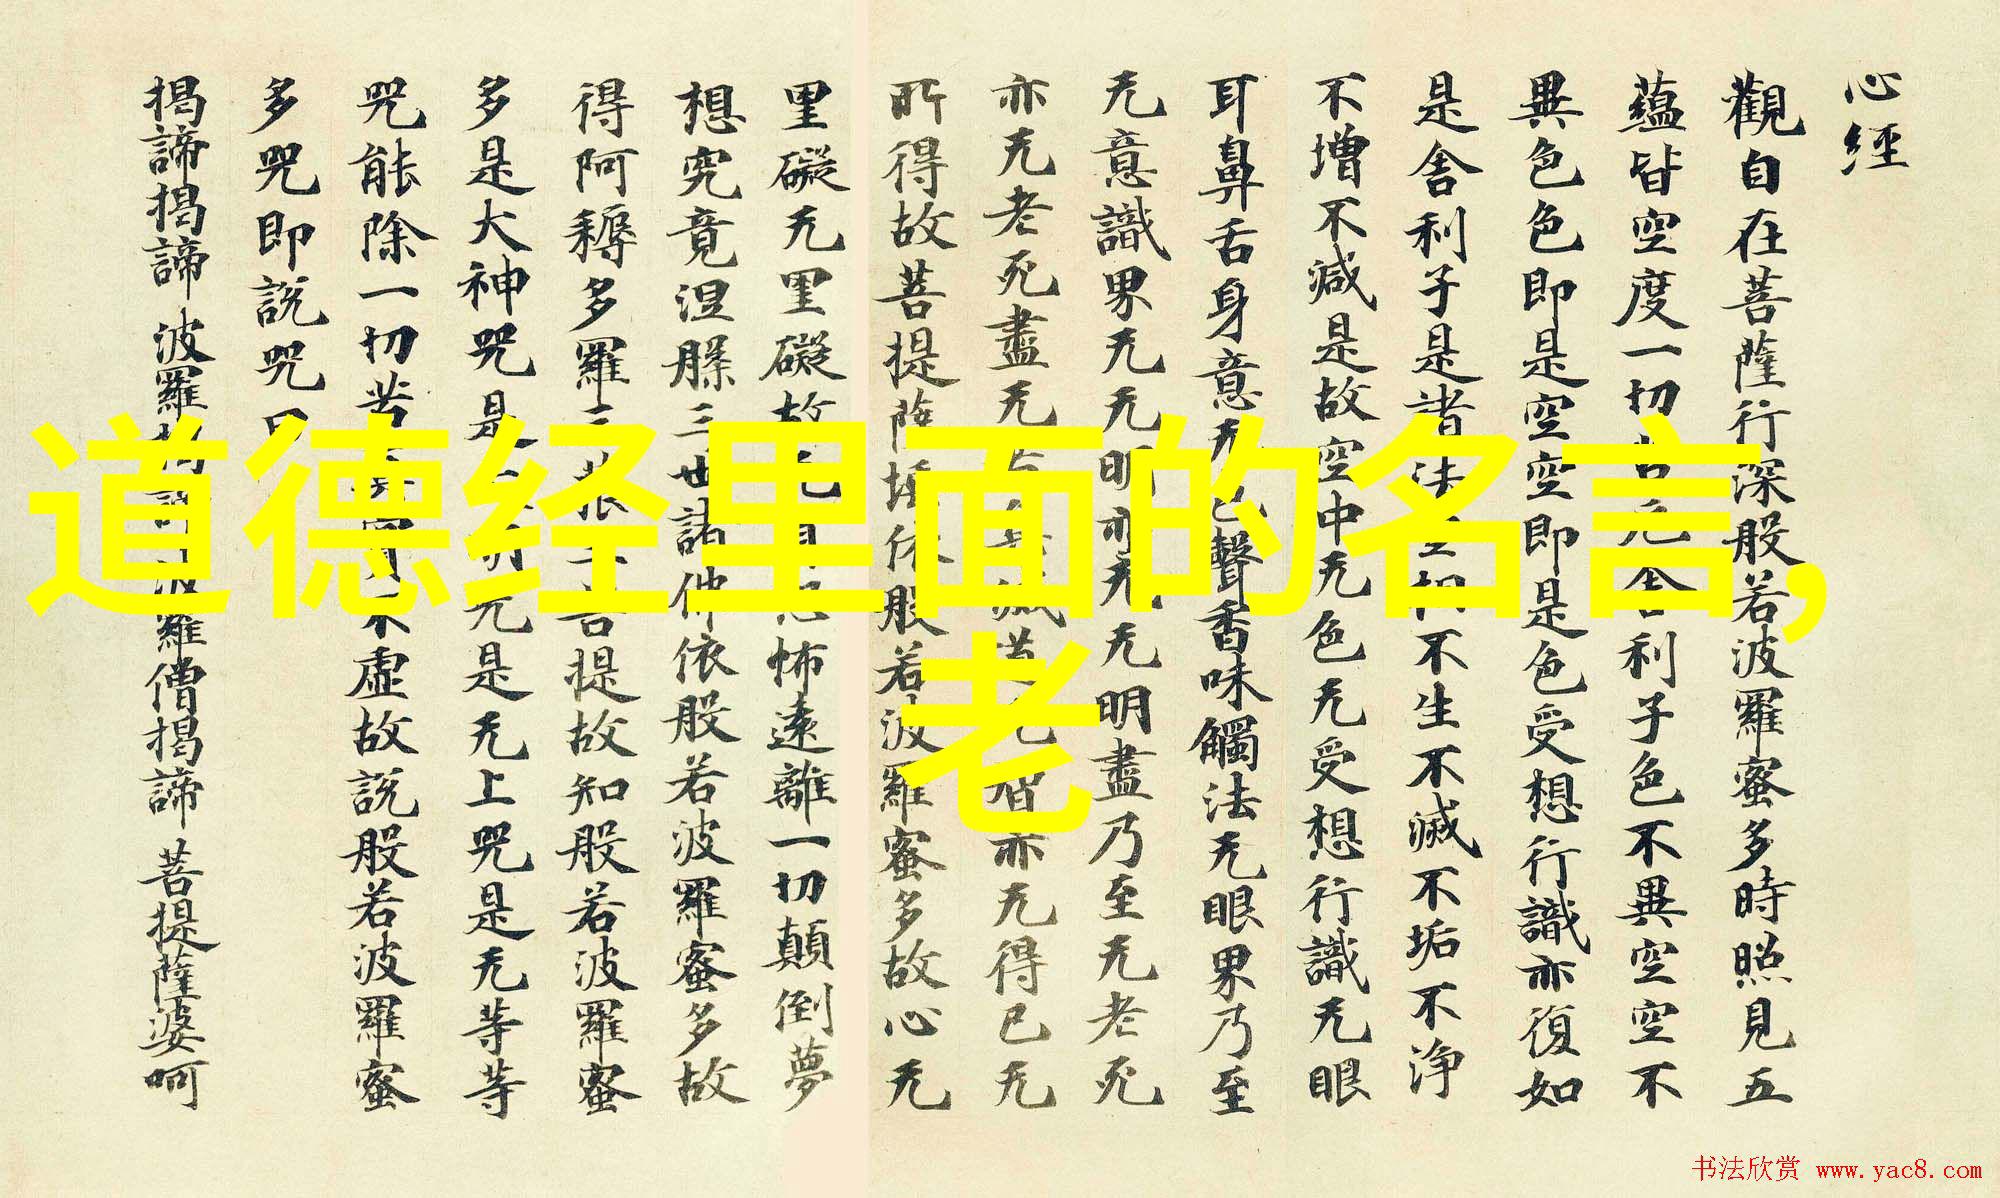 心經
觀自在菩薩行深般若波羅蜜多時照見五
蘊皆空度一切苦厄舍利子色不異空空不
異色色即是空空即是色受想行識亦復如
是舍利子是諸法空相不生不滅不垢不淨
不增不減是故空中无色无受想行識无眼
耳鼻舌身意无色聲香味觸法无眼界乃至
无意識界无无明亦无无明盡乃至无老死
亦无老死盡无滅道无智亦无得已无
所得故菩提薩埵依般若波羅蜜多故心无
罣礙无罣礙故怖遠離一切顛倒夢
想究竟涅槃三世諸佛依般若波羅蜜多故
得阿耨多羅三菩提故知般若波羅蜜
多是大神咒是明咒是无上咒是无等等
咒能除一切苦不虛故說般若波羅蜜
多咒即說咒曰
揭諦揭諦 波羅揭諦 波羅僧揭諦 菩提薩婆呵
道德经里面的名言,
老
书法欣赏 www.yac8.com